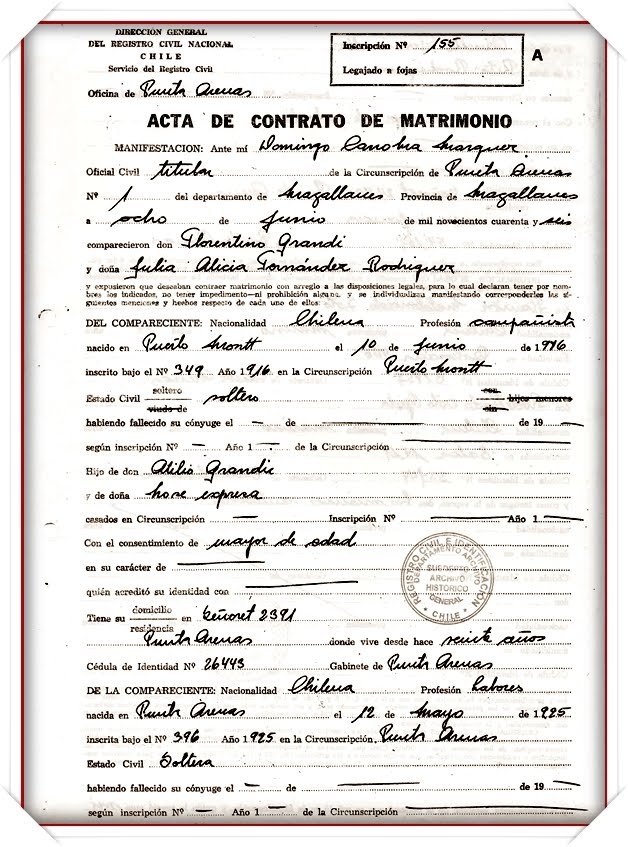 DIRECCION GENERAL
DEL REGISTRO CIVIL NACIONAL
CHILE
Servicio del Registro Civil
Oficina de Punta Arenas
Inscripción Nº 155
Legajado a fojas
A
ACTA DE CONTRATO DE MATRIMONIO
MANIFESTACION: Ante mí Domingo Canobra Marquez
Oficial Civil titular de la Circunscripción de Punta Arenas
Nº 1 del departamento de Magallanes Provincia de Magallanes
a ocho de junio de mil novecientos cuarenta y seis
comparecieron don Florentino Grandi
y doña Julia Alicia Fernández Rodriguez
y expusieron que deseaban contraer matrimonio con arreglo a las disposiciones legales, para lo cual declaran tener por nom-
bres los indicados, no tener impedimento—ni prohibición alguna, y se individualizan manifestando corresponderles las si-
guientes menciones y hechos respecto de cada uno de ellos:
DEL COMPARECIENTE: Nacionalidad Chilena Profesión campañista
nacido en Puerto Montt el 10 de junio de 1916
inscrito bajo el Nº 349 Año 1916 en la Circunscripción Puerto Montt
Estado Civil soltero viudo de soltero con sin hijos menores
habiendo fallecido su cónyuge el — de — de 19 —
según inscripción Nº — Año 1 — de la Circunscripción —
Hijo de don Atilio Grandie
y de doña no se expresa
casados en Circunscripción — Inscripción Nº — Año 1 —
Con el consentimiento de mayor de edad
en su carácter de —
quién acreditó su identidad con —
REGISTRO CIVIL E IDENTIFICACION
DEPARTAMENTO ARCHIVO
ARCHIVO
HISTORICO
GENERAL
CHILE
Tiene su domicilio residencia en Señoret 2391
Punta Arenas donde vive desde hace veinte años
Cédula de Identidad Nº 26443 Gabinete de Punta Arenas
DE LA COMPARECIENTE: Nacionalidad Chilena Profesión Labores
nacida en Punta Arenas el 12 de Mayo de 1925
inscrita bajo el Nº 396 Año 1925 en la Circunscripción Punta Arenas
Estado Civil Soltera
habiendo fallecido su cónyuge el — de — de 19 —
según inscripción Nº — Año 1 — de la Circunscripción —